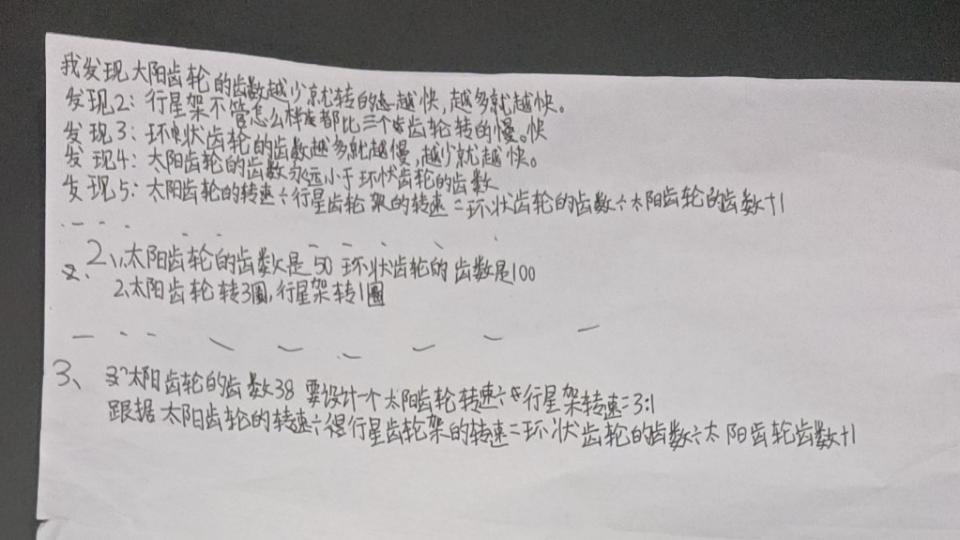 我发现太阳齿轮的齿数越少就转的越快,越多就越快。
发现2:行星架不管怎么样都比三个齿轮转的慢。快
发现3:环状齿轮的齿数越多就越慢,越少就越快。
发现4:太阳齿轮的齿数永远小于环状齿轮的齿数
发现5:太阳齿轮的转速÷行星齿轮架的转速=环状齿轮的齿数÷太阳齿轮的齿数+1
2、1,太阳齿轮的齿数是50 环状齿轮的齿数是100
2,太阳齿轮转3圈,行星架转1圈
3、太阳齿轮的齿数38 要设计一个太阳齿轮转速÷行星架转速=3:1
跟据太阳齿轮的转速÷行星齿轮架的转速=环状齿轮的齿数÷太阳齿轮齿数+1